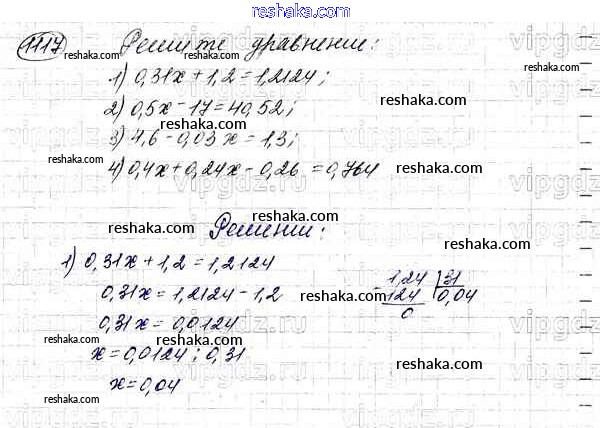 reshaka.com
1117 Решите уравнение:
reshaka.com reshaka.com reshaka.com
1) 0,31x + 1,2 = 1,2124;
2) 0,5x - 17 = 40,52;
reshaka.com
reshaka.com
3) 4,6 - 0,03x = 1,3;
4) 0,4x + 0,24x - 0,26 = 0,764
reshaka.com reshaka.com
reshaka.com Решении: reshaka.com reshaka.com
1) 0,31x + 1,2 = 1,2124
reshaka.com
0,31x = 1,2124 - 1,2
1,24 31
- 124 0,04
0
reshaka.com
reshaka.com
0,31x = 0,0124
reshaka.com
x = 0,0124 : 0,31
reshaka.com reshaka.com
x = 0,04
reshaka.com
vipgdz.ru